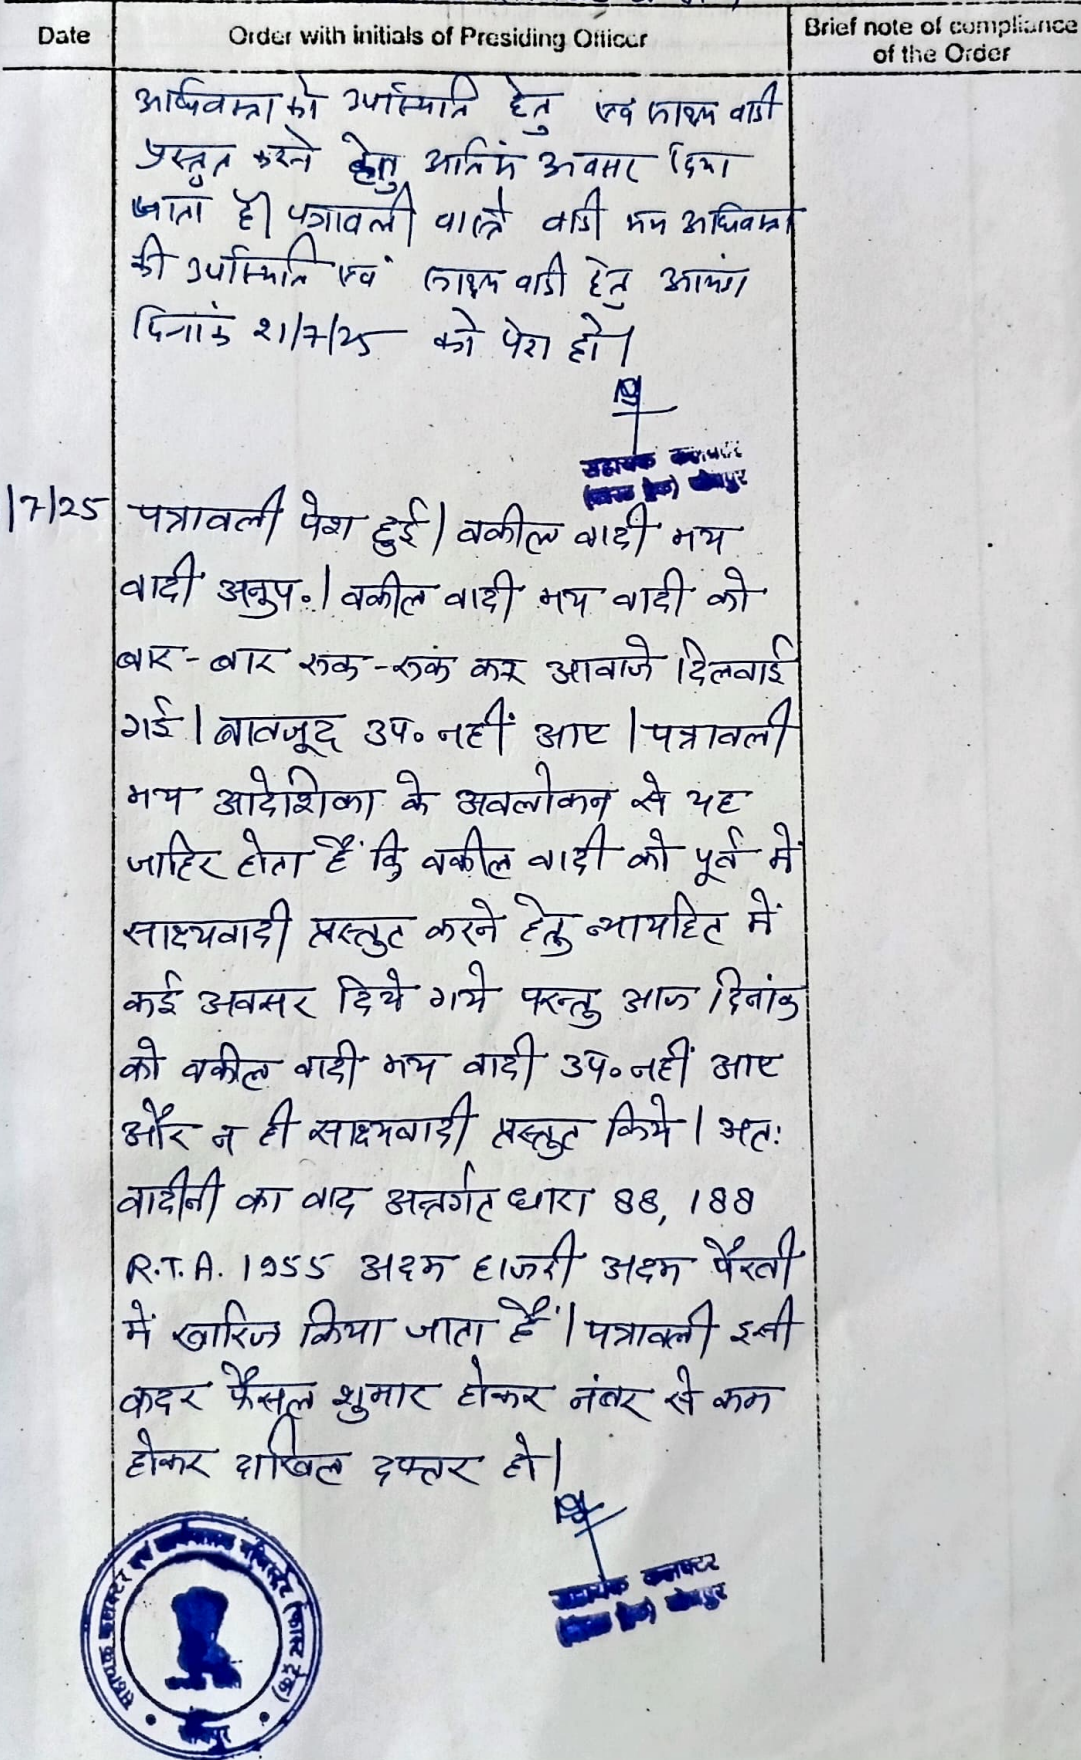 Date
Order with initials of Presiding Officer
Brief note of compliance
of the Order
को उपस्थिति हेतु एवं वादी
प्रस्तुत करने हेतु अंतिम अवसर दिया
जाता है। पत्रावली वास्ते वादी मय अधिवक्ता
की उपस्थिति एवं साक्ष्य वादी हेतु
दिनांक 21/7/25 को पेश हो।
सहायक कलक्टर
/7/25 पत्रावली पेश हुई। वकील वादी मय
वादी अनुप०। वकील वादी मय वादी को
बार-बार रुक-रुक कर आवाजे दिलवाई
गई। बावजूद उप० नहीं आए। पत्रावली
मय आदेशिका के अवलोकन से यह
जाहिर होता हैं कि वकील वादी को पूर्व में
साक्ष्यवादी प्रस्तुट करने हेतु न्यायहित में
कई अवसर दिये गये परन्तु आज दिनांक
को वकील वादी मय वादी उप० नहीं आए
और न ही साक्ष्यवादी प्रस्तुट किये। अतः
वादीनी का वाद अन्तर्गत धारा 88, 188
R.T.A. 1955 अदम हाजरी अदम पैरवी
में खारिज किया जाता हैं। पत्रावली इसी
कदर फैसल शुमार होकर नंबर से कम
होकर दाखिल दफ्तर हो।
सहायक कलक्टर
सहायक कलक्टर एवं कार्यपालक मजिस्ट्रेट (फास्ट ट्रेक)